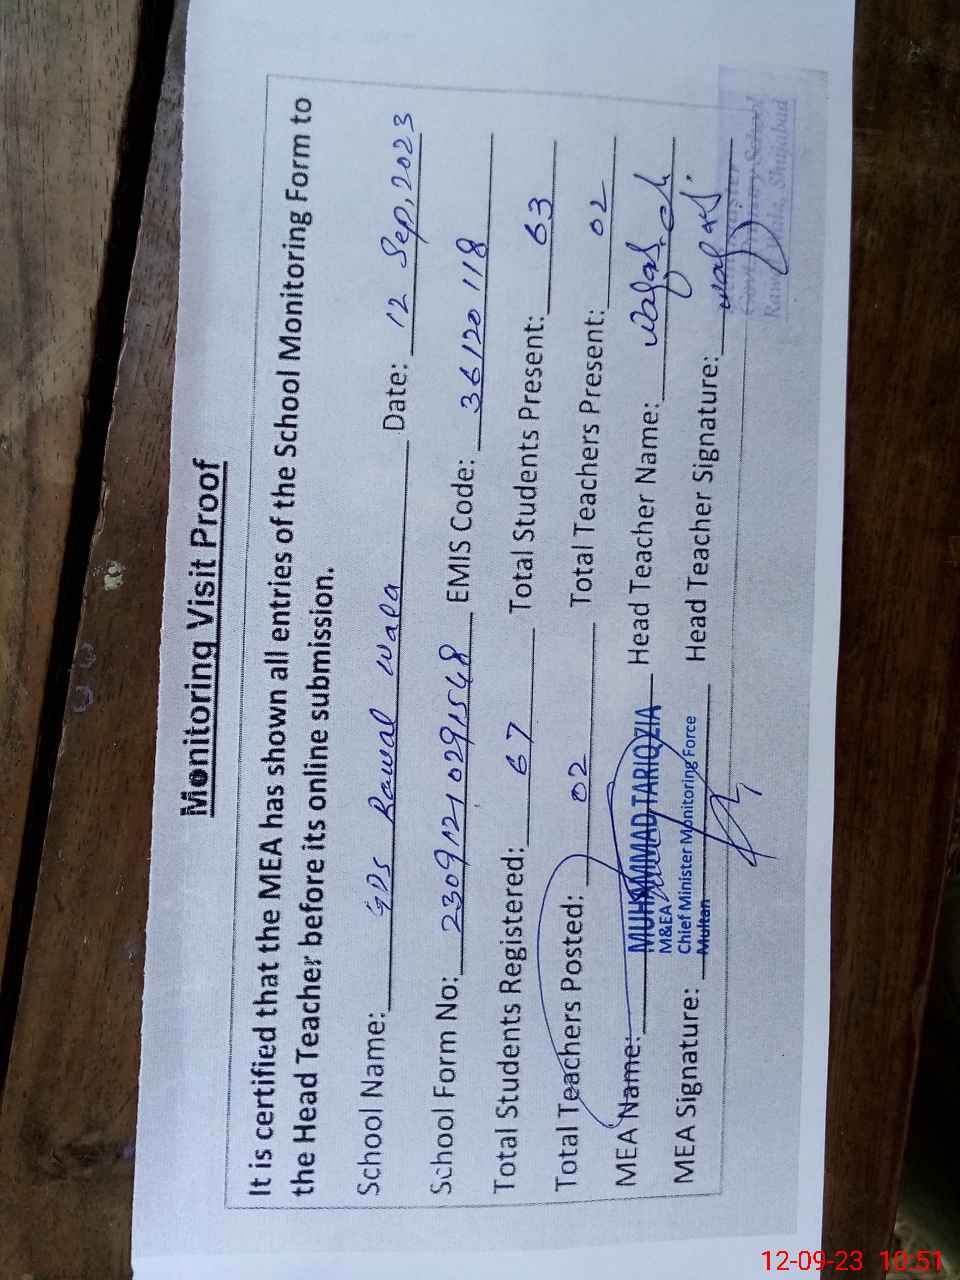 Monitoring Visit Proof
It is certified that the MEA has shown all entries of the School Monitoring Form to
the Head Teacher before its online submission.
School Name: GPS Rawal wala Date: 12 Sep, 2023
School Form No: 23091210291548 EMIS Code: 36120118
Total Students Registered: 67 Total Students Present: 63
Total Teachers Posted: 02 Total Teachers Present: 02
MEA Name: MUHAMMAD TARIQ ZIA Head Teacher Name:
M&EA
Chief Minister Monitoring Force
Multan
MEA Signature: Head Teacher Signature:
School
Shujabad
12-09-23 10:51